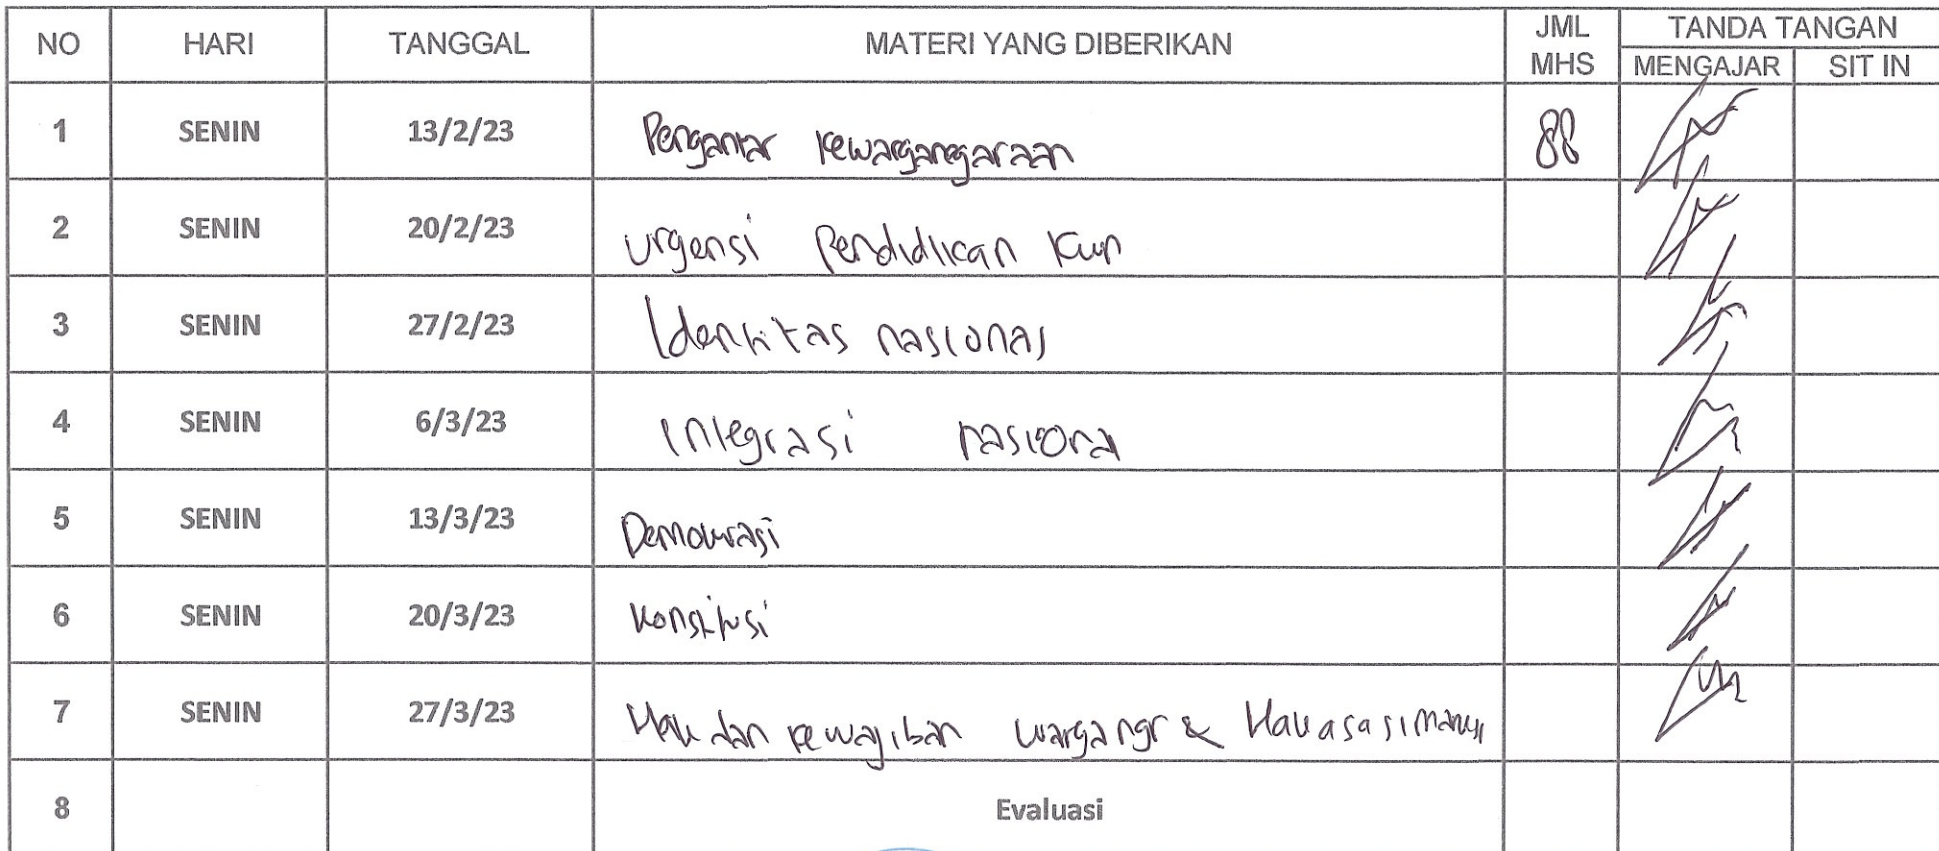 NO HARI TANGGAL MATERI YANG DIBERIKAN JML MHS TANDA TANGAN
MENGAJAR SIT IN
1 SENIN 13/2/23 Pengantar kewarganegaraan 88
2 SENIN 20/2/23 Urgensi Pendidikan Kwn
3 SENIN 27/2/23 Identitas nasional
4 SENIN 6/3/23 Integrasi nasiona
5 SENIN 13/3/23 Demokrasi
6 SENIN 20/3/23 Konstitusi
7 SENIN 27/3/23 Hak dan kewajiban warga ngr & Hak asasi manusi
8 Evaluasi